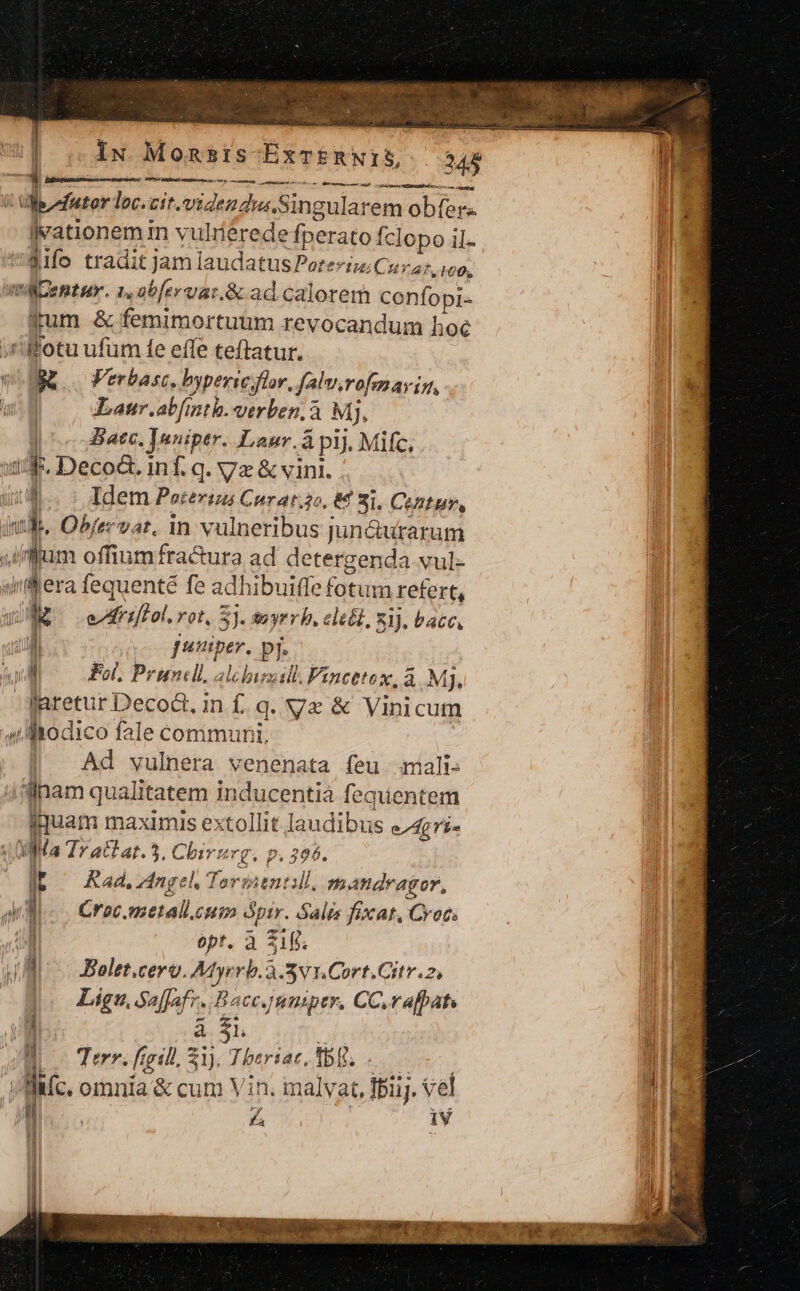 IN MORBIS EXTERNIS, 345
Autor loc. cit. videndus. Singularem obſer-
vationem in vulnere deſperato ſclopo il-
liſo tradit jam laudatus Poterius Curat. 100,
Centur. 1. obſervat. & ad calorem conſopi-
tum & ſemimortuum revocandum hoc
fotu uſum ſe eſſe teſtatur.
℞ Verbasc. hyperic. flor. ſalv. roſmarin,
Laur. abſinth. verben. à Mj.
Bacc. Juniper. Laur. à pij. Miſc.
F. Decoct. in ſ. q. ▽æ & vini.
Idem Poterius Curat. 30. & 31. Centur,
Obſervat. in vulneribus juncturarum
cum oſſium fractura ad detergenda vul-
nera ſequenté ſe adhibuiſſe fotum refert,
℞ Ariſtol. rot. ℥j. myrrh. elect. ʒij. bacc,
juniper. pj.
Fol. Prunell. alchimill. Vincetox, à Mj,
Paretur Decoct. in ſ. q. ▽æ & Vini cum
modico ſale communi.
Ad vulnera venenata ſeu mali-
gnam qualitatem inducentia ſequentem
aquam maximis extollit laudibus Agri-
cola Tractat. 3. Chirurg. p. 396.
℞ Rad. Angel. Tormentill. mandragor,
Croc. metall. cum Spir. Salis fixat, Croc.
opt. à ℥iß.
Bolet. cerv. Myrrh. à ʒvi. Cort. Citr. 2,
Lign. Saſſafr. Bacc. juniper. CC. raſpat.
à ℥i.
Terr. ſigill. ℥ij. Theriac. ℔ß.
Miſc. omnia & cum Vin. malvat, ℔iij. vel
Z iv